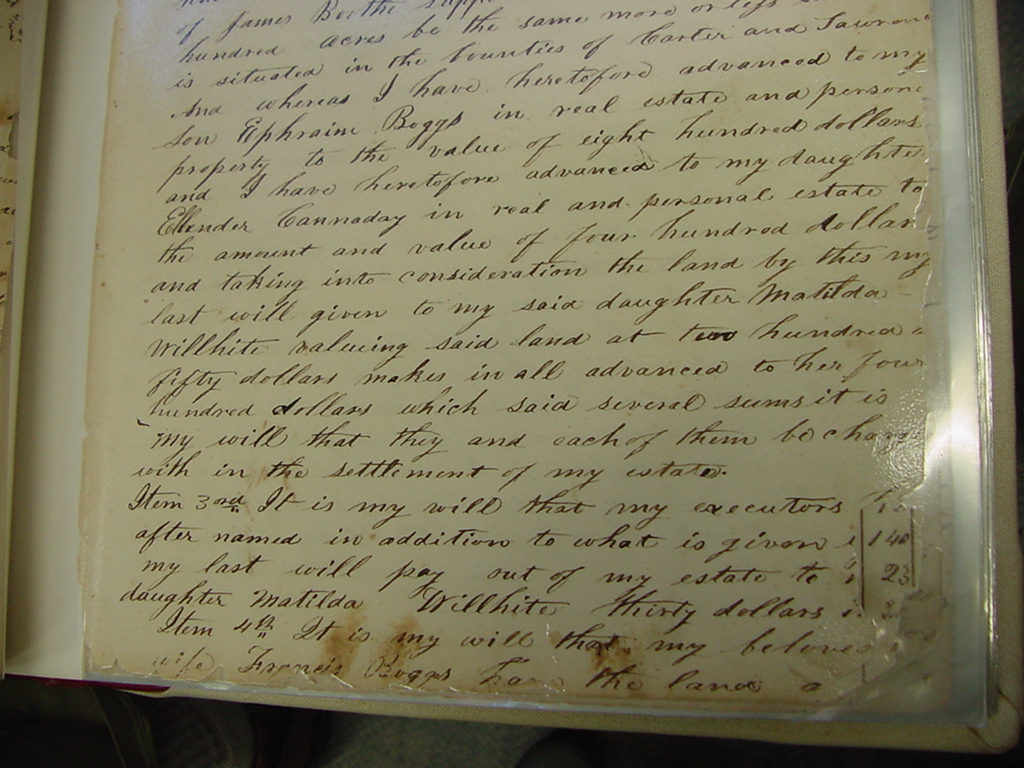 of James Burtin
hundred acres be the same more or less
is situated in the counties of Carter and Lawrenc
And whereas I have heretofore advanced to my
Son Ephraim Boggs in real estate and persona
property to the value of eight hundred dollars
and I have heretofore advanced to my daughter
Elender Cannaday in real and personal estate to
the amount and value of four hundred dollar
and taking into consideration the land by this my
last will given to my said daughter Matilda
Willhite valuing said land at two hundred &
fifty dollars makes in all advanced to her four
hundred dollars which said several sums it is
my will that they and each of them be charg
with in the settlement of my estate.
Item 3rd It is my will that my executors
after named in addition to what is given i
my last will pay out of my estate to
daughter Matilda Willhite thirty dollars
Item 4th It is my will that my beloved
wife Francis Boggs have the land
140
23